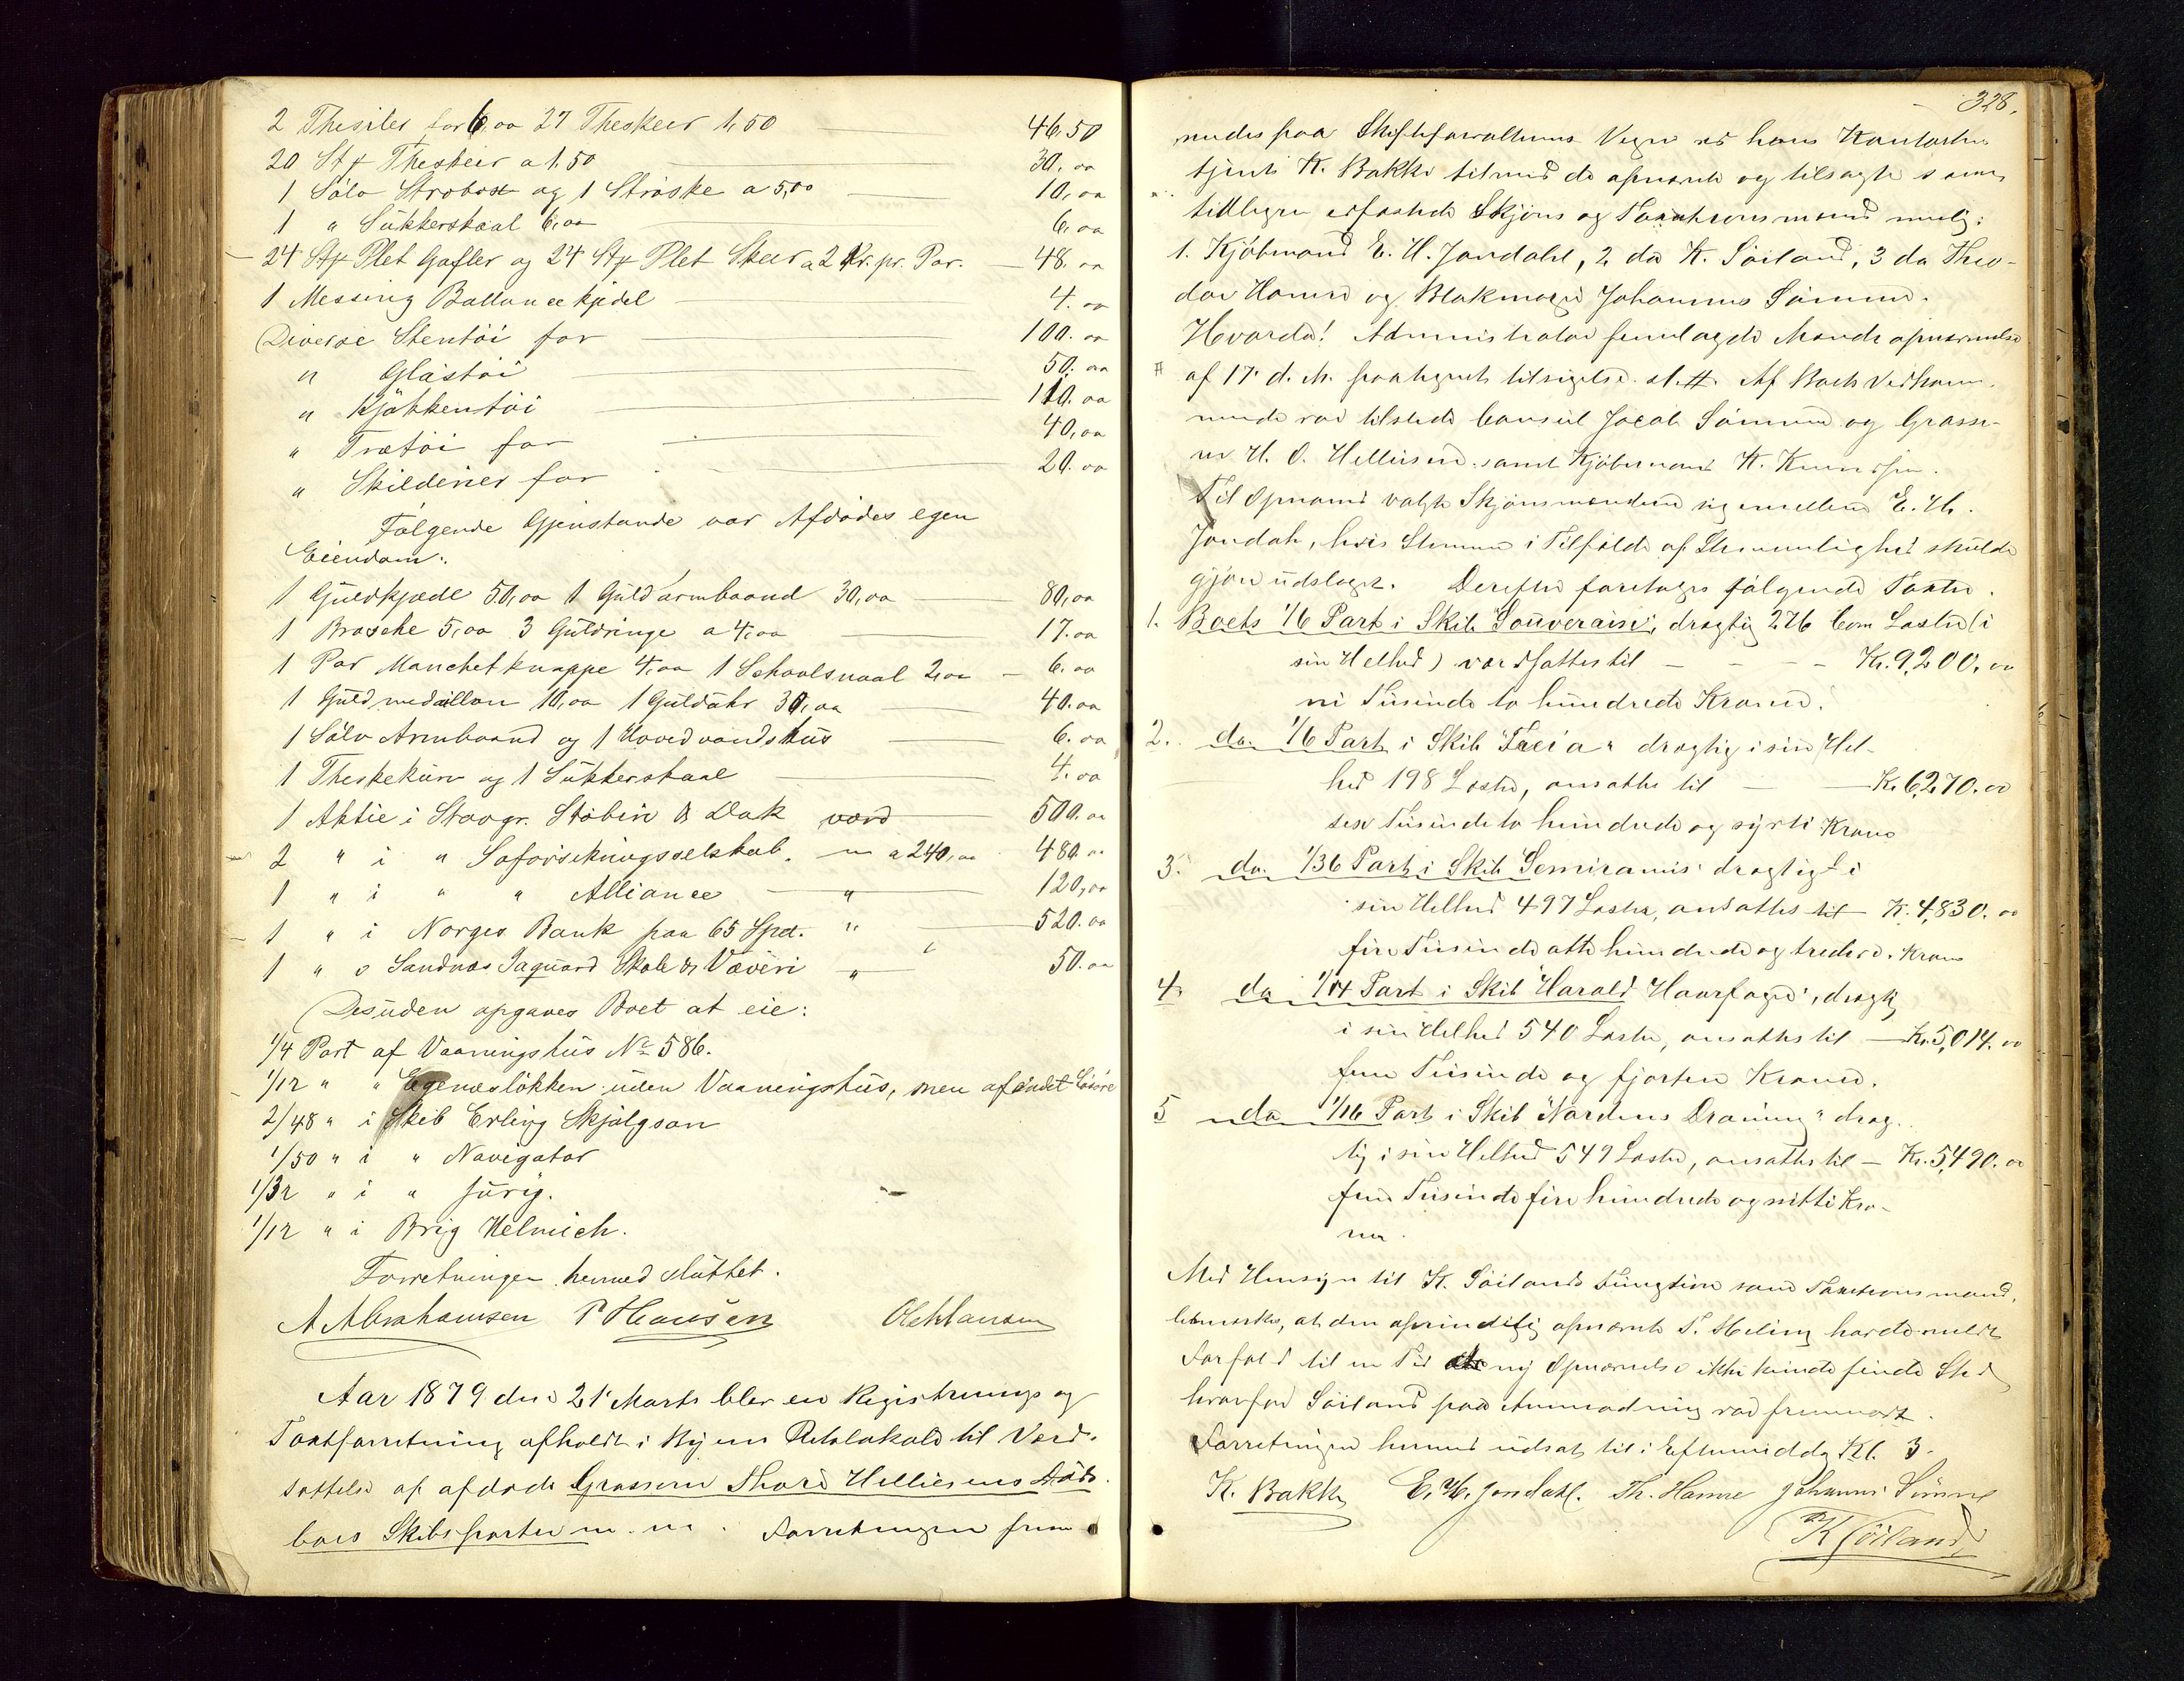 2 Thesiler for 6,00 27 Theskeer 1,50 46.50
20 Stk Theskeer a 1.50 30.00
1 Sölv Ströbox og 1 Ströske a 5,00 10,00
1 " Sukkerskaal 6,00 6,00
24 Stk Plet Gafler og 24 Stk Plet Skeer a 2 Kr. pr. Par. 48.00
1 Messing Ballancekjedel 4.00
Diverse Stentöi for 100.00
" Glastöi 50.00
" Kjökkentöi 110.00
" Trætöi for 40,00
" Skilderier for 20.00
Fölgende Gjenstande var Afdödes egen
Eiendom:
1 Guldkjæde 50,00 1 Guldarmbaand 30,00 80,00
1 Brosche 5,00 3 Guldringe a 4,00 17.00
1 Par Manchetknappe 4,00 1 Schavlsnaal 2,00 6.00
1 Guldmedaillon 10,00 1 Guldühr 30,00 40.00
1 Sölv Armbaand og 1 Hovedvandshus 6.00
1 Theskekurv og 1 Sukkerskaal 4.00
1 Aktie i Stavgr. Stöberi & Dok værd 500.00
2 " i " Söforsikringsselskab. " a 240,00 480.00
1 " i " " Alliance " 120,00
1 " i Norges Bank paa 65 Spd. " 520.00
1 " i Sandnæs Jaquard Skole & Væveri " 50.00
Desuden opgaves Boet at eie:
1/4 Part af Vaaningshus No 586.
1/12 " " Egenesløkken uden Vaaningshus, men af andet Løsøre
2/48 " i Skib Erling Skjalgson
1/50 " i " Navigator
1/32 " i " Jürig.
1/12 " i Brig Helmich.
Forretningen hermed sluttet.
A Abrahamsen P Hansen Ole Hansen
Aar 1879 den 21' Marts blev en Registrerings og
Taxtforretning afholdt i Byens Retslokale til Værd-
sættelse af afdöde Grosserer Thore Helliesens Döds-
boes Skibsparter m. m. Forretningen frem
328.
medes paa Skifteforvalterens Vegne af hans Kontorbe-
tjent K. Bakke tilmed de opnævnte og tilsagte samt
tidligere edfæstede Skjöns og Taxationsmænd nemlig:
1. Kjöbmand E. H. Jondahl, 2 do K. Söiland, 3 do Theo-
dor Hamre og Blokmager Johannes Sömme.
Hvorda! Administrator fremlagde Mands opnævnelse
af 17. d. M. paategnet tilsigelse. Af Boets Vedkom-
mende var tilstede Consul Jacob Sömme og Grosse-
rer H. O. Helliesen samt Kjöbmand K.
Til Opmand valgte Skjönsmændene sig imellem E. H.
Jondah, hvis Stemme i Tilfælde af Stemmelighed skulde
gjöre udslaget. Derefter foretoges fölgende Taxter.
1. Boets 1/6 Part i Skib Souverain, drægtig 276 Com Læster (i
sin Helhed) værdsattes til Kr. 9,200,00
ni Tusinde to hundrede Kroner.
2. do. 1/6 Part i Skib "Freia" drægtig i sin Hel-
hed 198 Læster, ansattes til Kr. 6,270.00
sex Tusinde to hundrede og sytti Kroner
3. do. 1/36 Part i Skib Semiramis drægtigt i
sin Helhed 497 Læster, ansattes til Kr. 4,830.00
fire Tusinde otte hundrede og tredive Kroner
4. do 1/14 Part i Skib Harald Haarfagre, drægtig
i sin Helhed 540 Læster, ansattes til Kr. 5,014.00
fem Tusinde og fjorten Kroner.
5 do 1/16 Part i Skib "Nordens Dronning" dræg-
tig i sin Helhed 549 Læster, ansattes til Kr. 5,490.00
fem Tusinde fire hundrede og nitti Kro-
ner.
Med Hensyn til K. Söilands Fungtion som Taxationsmand,
bemærkes, at den oprindelig opnævnte T. Meling havde meldt
Forfald til en Tid at ny Opnævnelse ikke kunde finde Sted
hvorfor Söiland paa Anmodning var fremmødt.
Forretningen hermed udsat til i Eftermiddag Kl. 3.
K. Bakke E. H. Jondahl. Th. Hamre Johannes Sömme
K Söiland